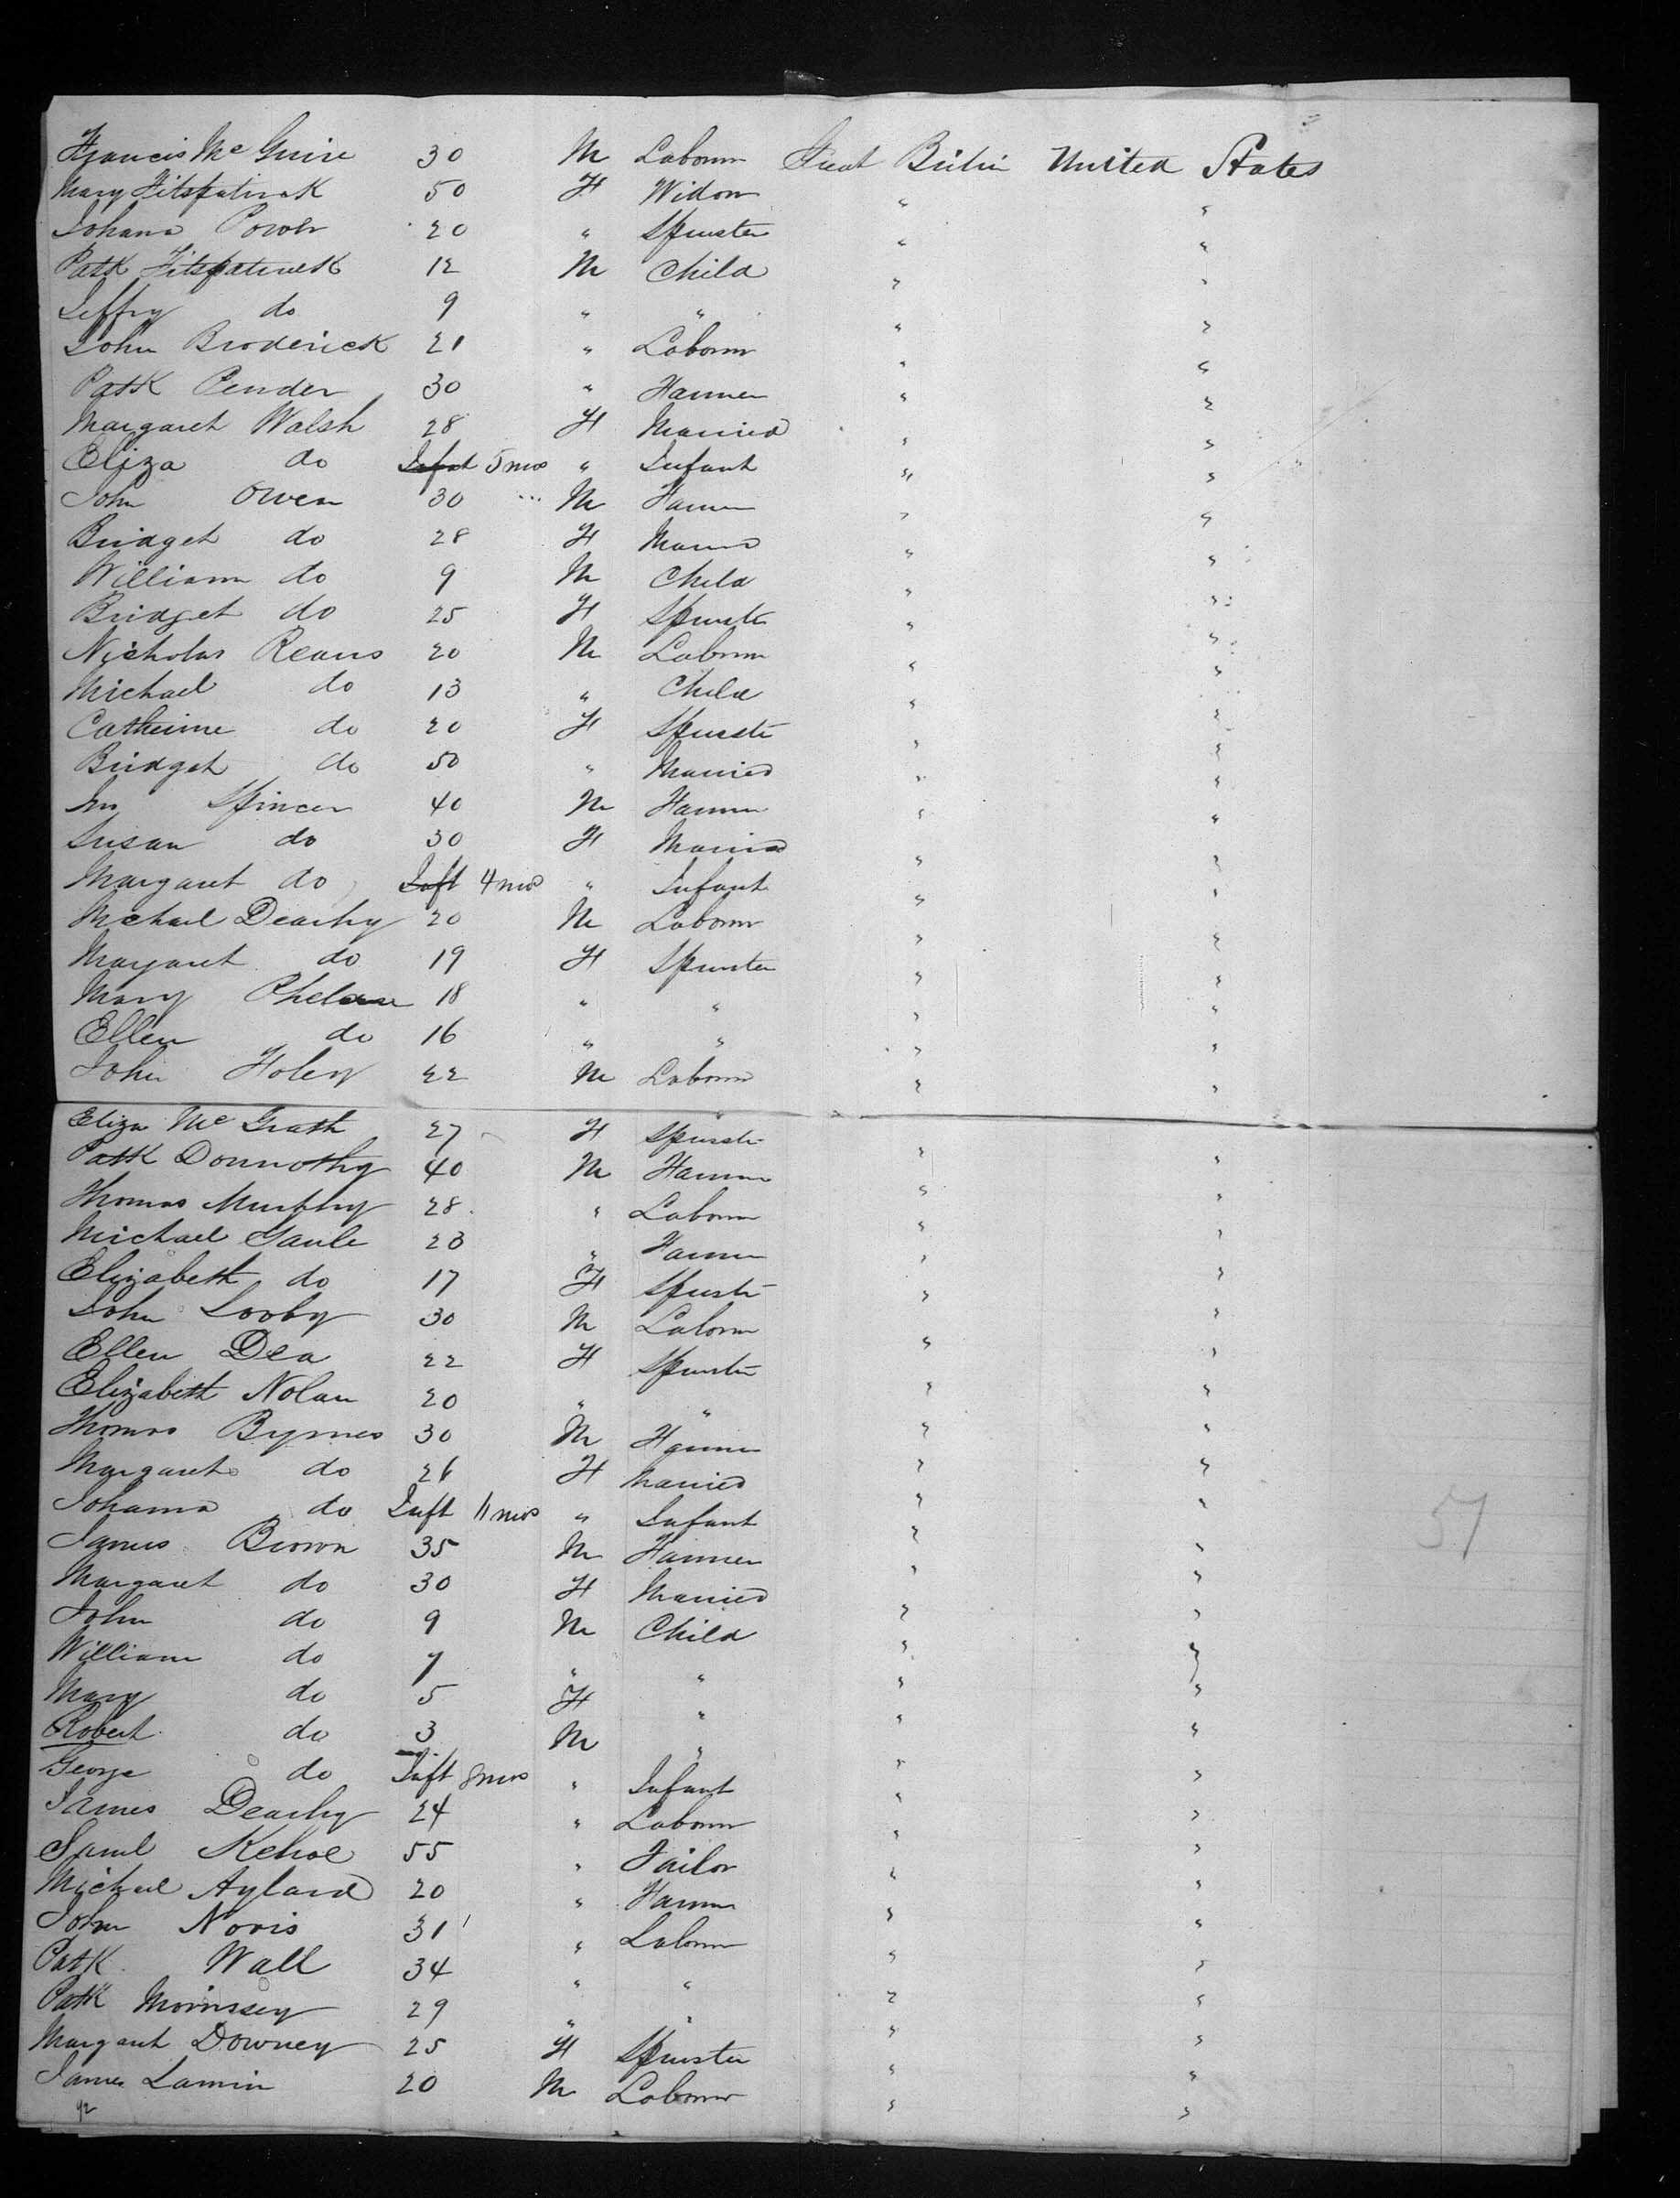 Francis Mc Guire 30 M Laborer Great Britin United States
Mary Fitspatrick 50 F Widow " "
Johana Power 20 " Spinster " "
Patk Fitspatrick 12 M Child " "
Jeffry do 9 " " " "
John Broderick 21 " Laborer " "
Patk Pender 30 " Farmer " "
Margaret Walsh 28 F Married " "
Eliza do Infant 5 mos " Infant " "
John Owen 30 M Farmer " "
Bridget do 28 F Married " "
William do 9 M Child " "
Bridget do 25 F Spinster " "
Nicholas Reans 20 M Laborer " "
Michael do 13 " Child " "
Catherine do 20 F Spinster " "
Bridget do 50 " Married " "
Jno Spincer 40 M Farmer " "
Susan do 30 F Married " "
Margaret do Inft 4 mos " Infant " "
Michael Deachy 20 M Laborer " "
Margaret do 19 F Spinster " "
Mary Phelan 18 " " " "
Ellen do 16 " " " "
John Foley 22 M Laborer " "
Eliza Mc Grath 27 F Spinster " "
Patk Donnothy 40 M Farmer " "
Thomas Murphy 28 " Laborer " "
Michael Gaule 23 " Farmer " "
Elizabeth do 17 F Spinster " "
John Looby 30 M Laborer " "
Ellen Dea 22 F Spinster " "
Elizabeth Nolan 20 " " " "
Thomas Byrnes 30 M Farmer " "
Margaret do 26 F Married " "
Johanna do Inft 11 mos " Infant " "
James Brown 35 M Farmer " "
Margaret do 30 F Married " "
John do 9 M Child " "
William do 7 " " " "
Mary do 5 F " " "
Robert do 3 M " " "
George do Inft 8 mos " Infant " "
James Deachy 24 " Laborer " "
Saml Kehoe 55 " Tailor " "
Michael Aylard 20 " Farmer " "
John Noris 31 " Laborer " "
Patk Wall 34 " " " "
Patk Morrissey 29 " " " "
Margaret Downey 25 F Spinster " "
James Lamin 20 M Laborer " "
57